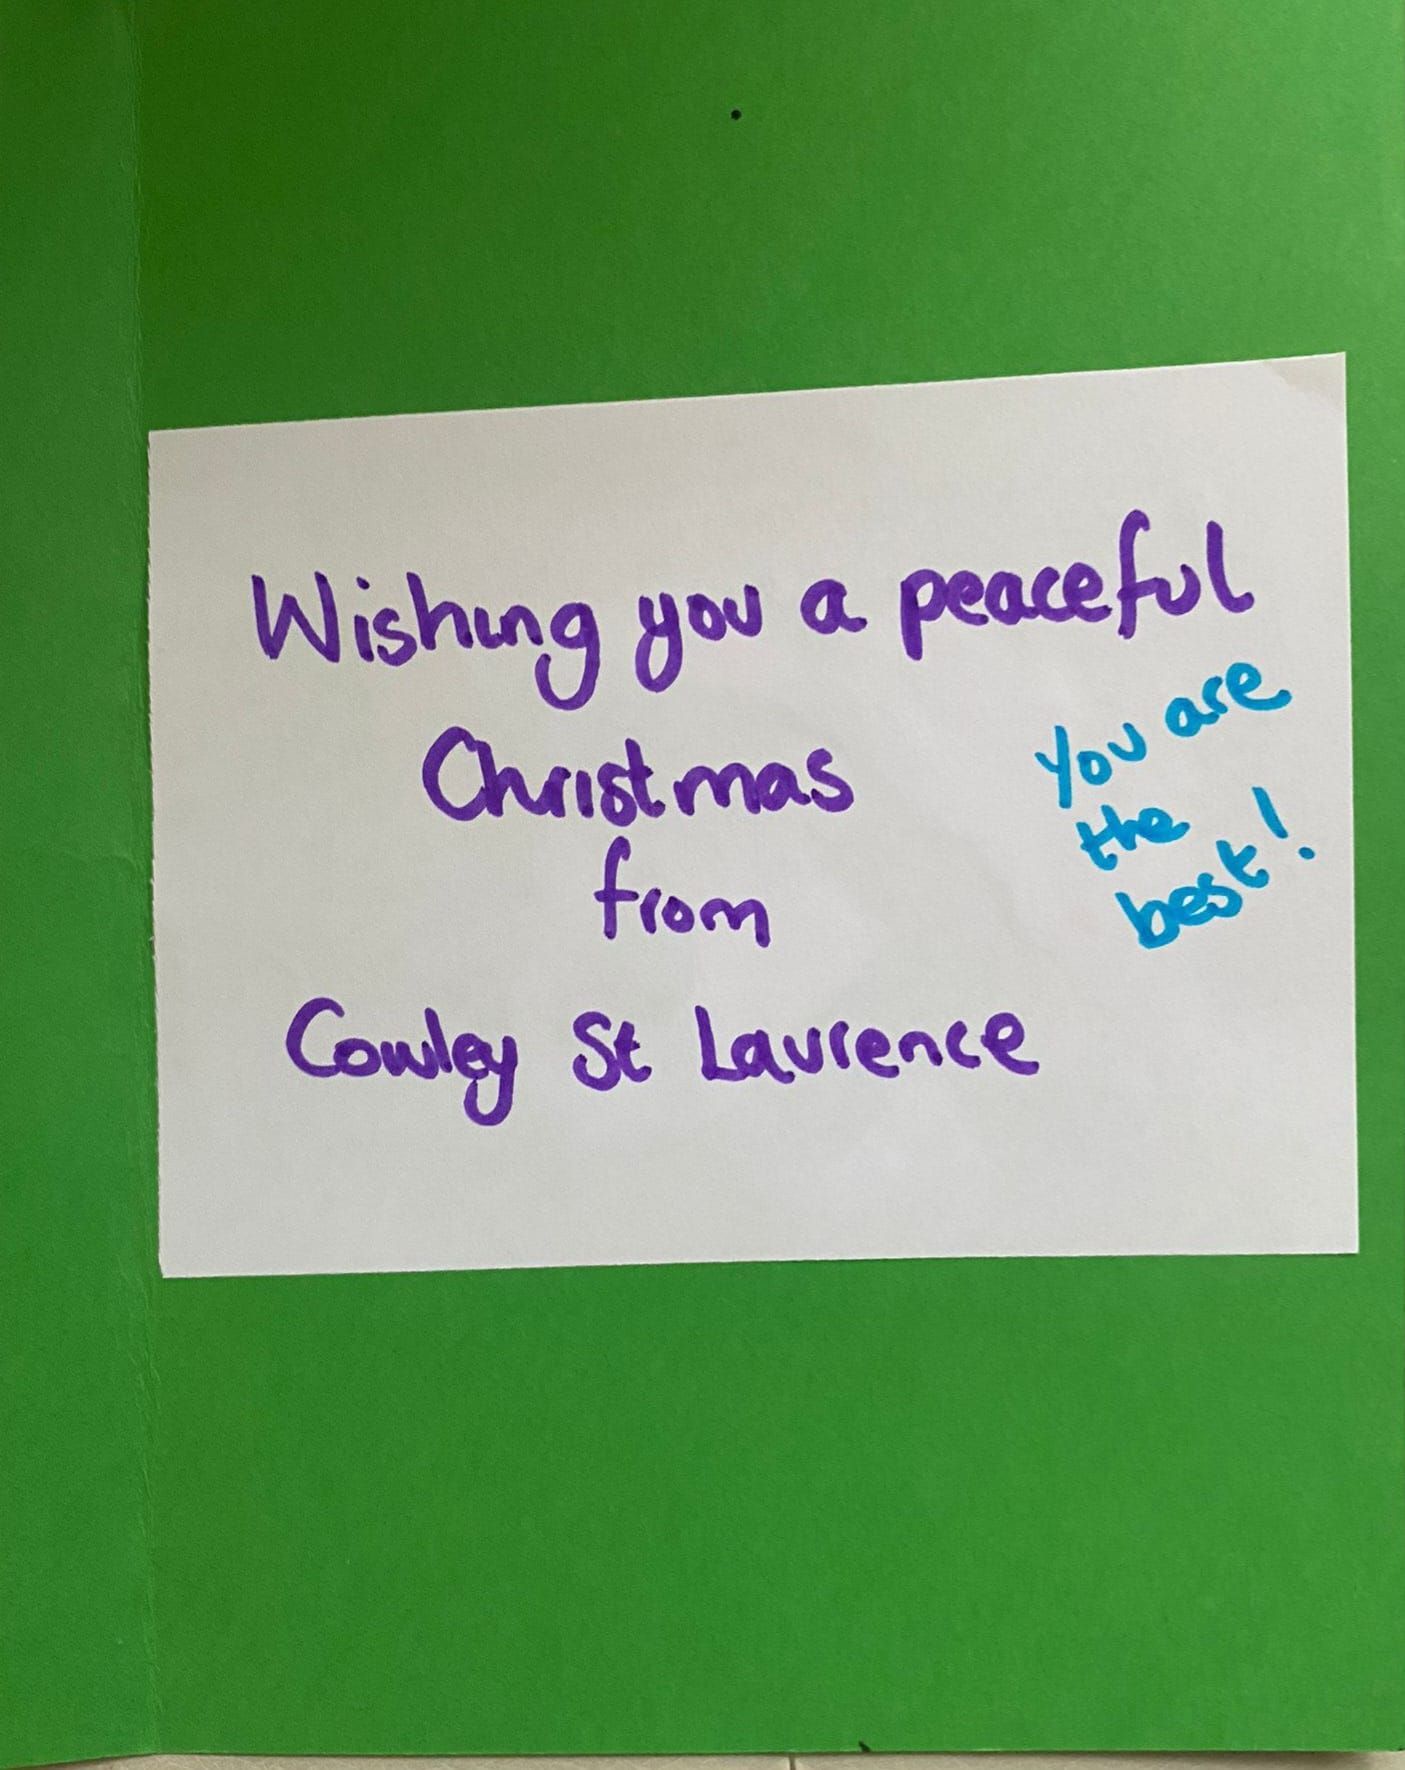 Wishing you a peaceful
Christmas
from
Cowley St Laurence
You are
the
best!